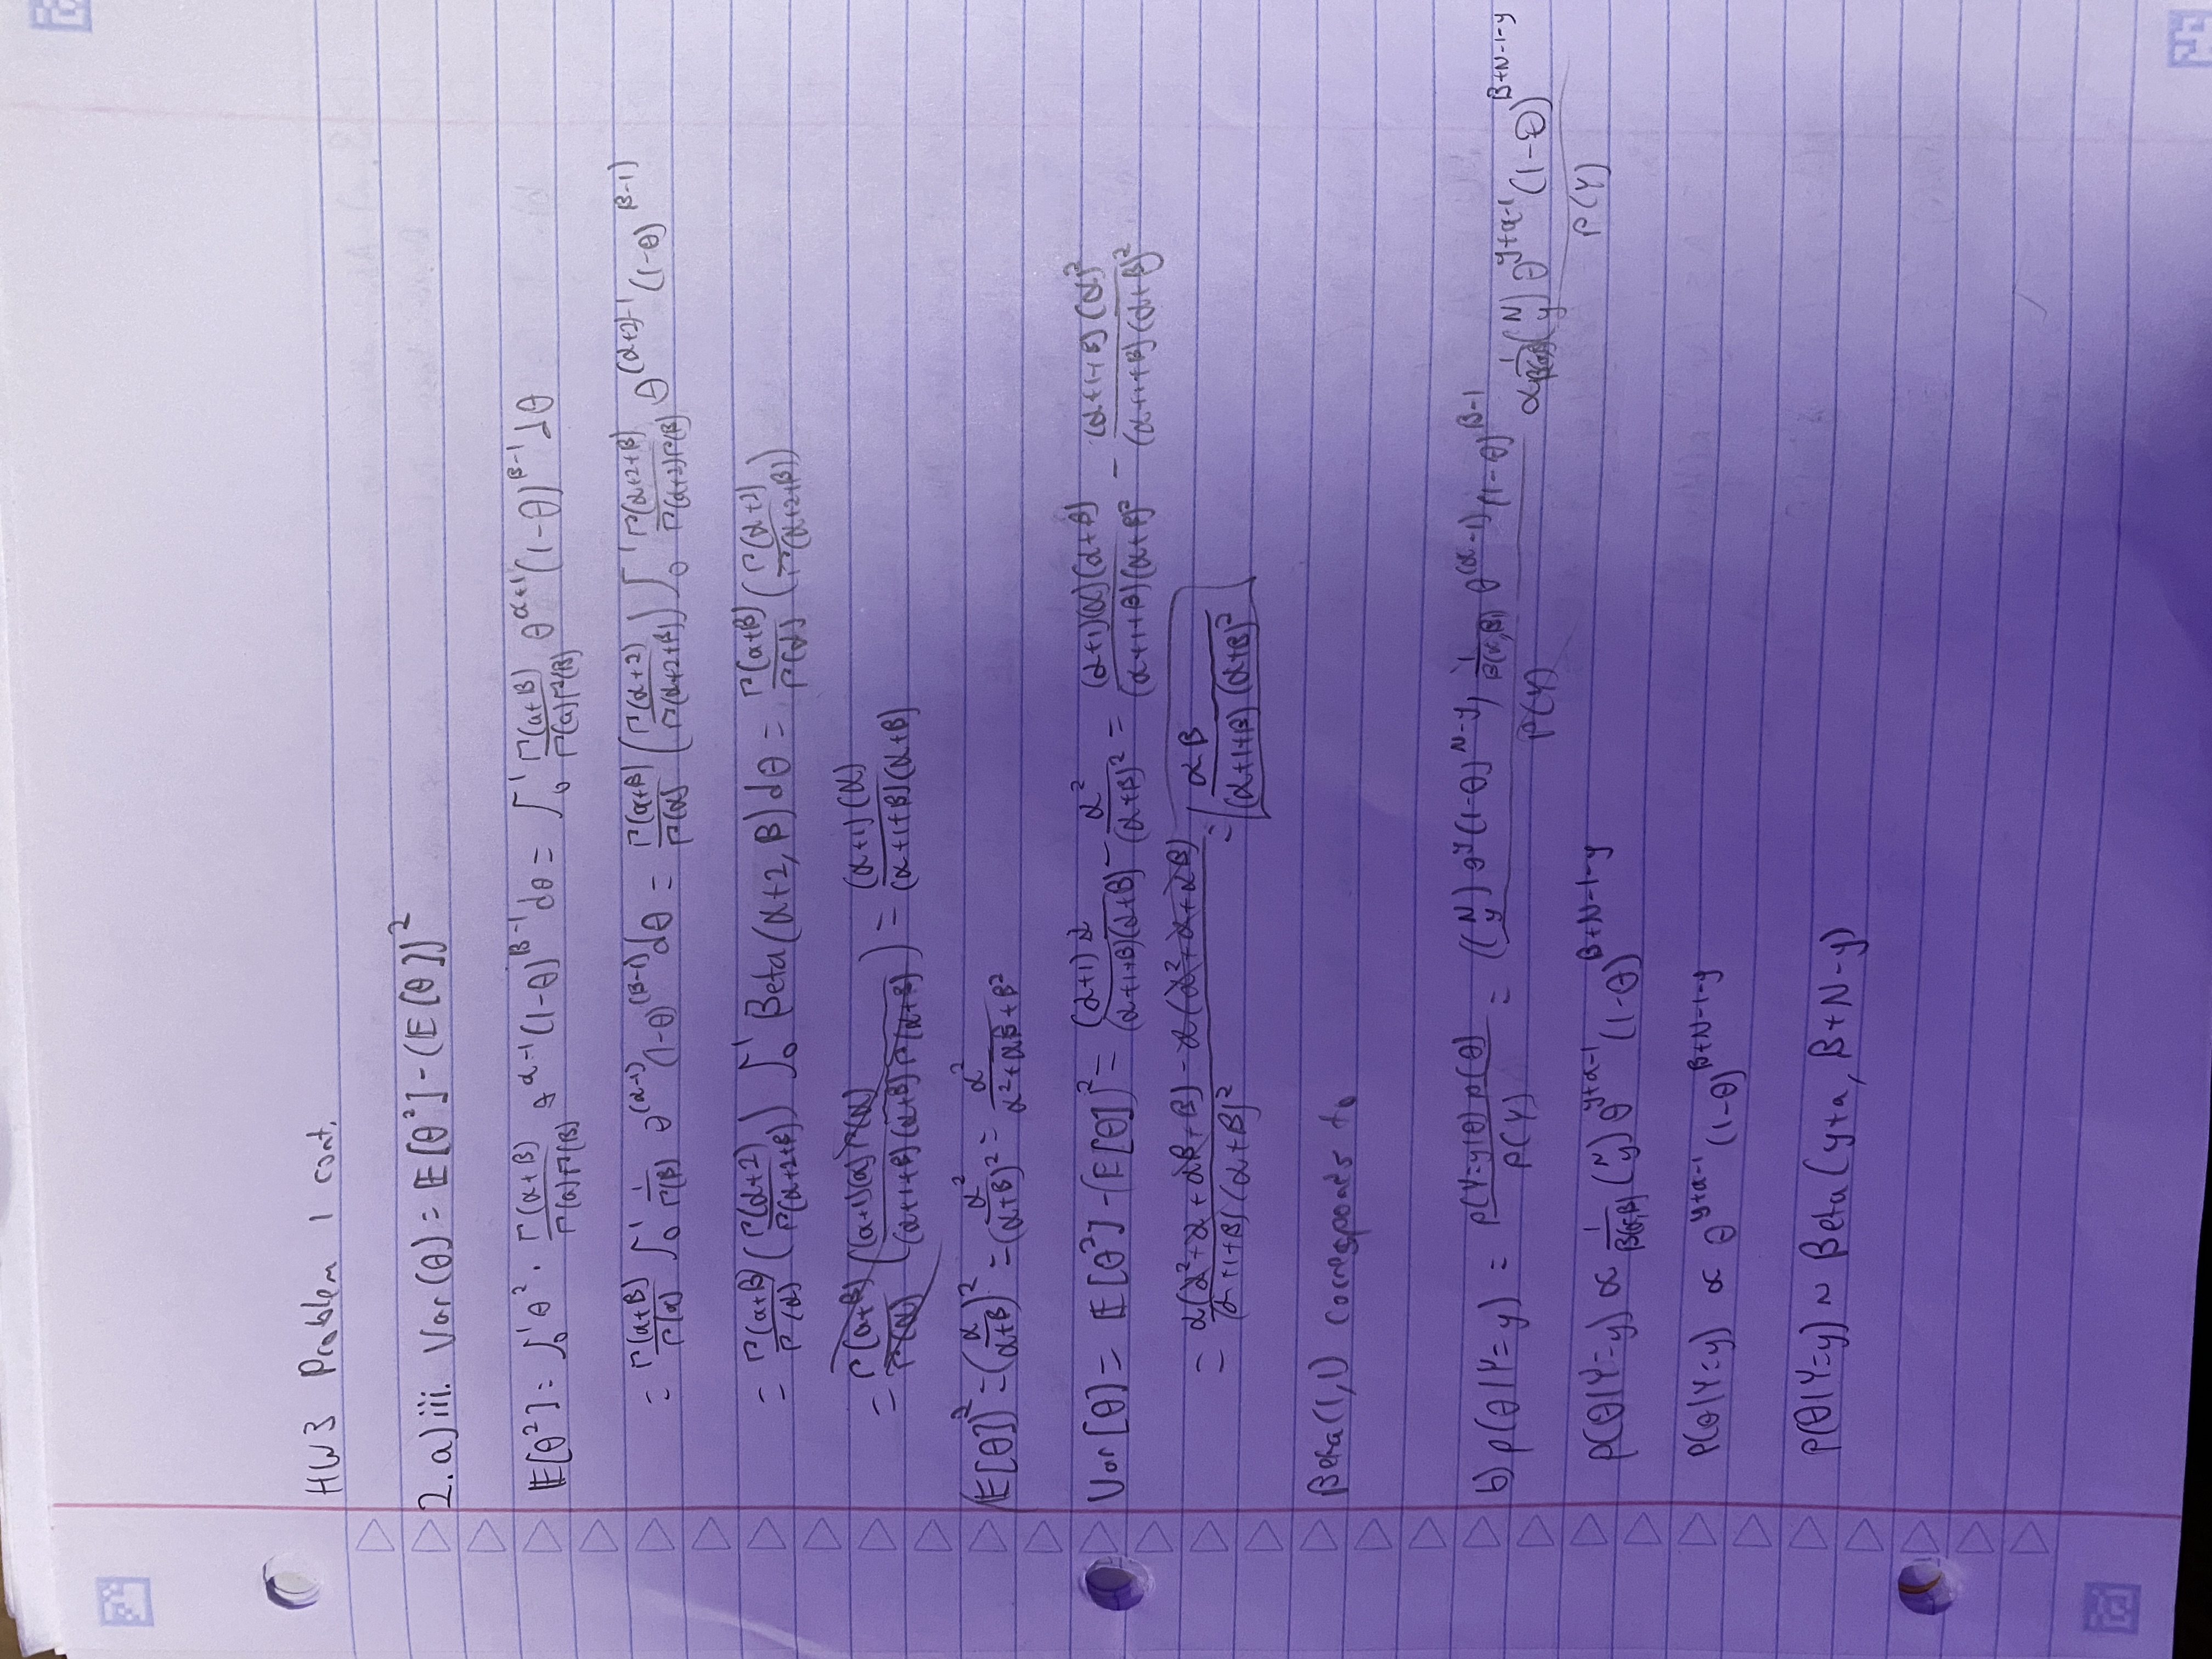 HW3 Problem 1 cont.
2. a) iii. Var(θ) = E[θ²] - (E[θ])²
E[θ²] = ∫₀¹ θ² · Γ(α+β)/Γ(α)Γ(β) θ^(α-1) (1-θ)^(β-1) dθ = ∫₀¹ Γ(α+β)/Γ(α)Γ(β) θ^(α+1) (1-θ)^(β-1) dθ
= Γ(α+β)/Γ(α) ∫₀¹ 1/Γ(β) θ^(α-1) (1-θ)^(β-1) dθ = Γ(α+β)/Γ(α) (Γ(α+2)/Γ(α+2+β)) ∫₀¹ Γ(α+2+β)/Γ(α+2)Γ(β) θ^((α+2)-1) (1-θ)^(β-1)
= Γ(α+β)/Γ(α) (Γ(α+2)/Γ(α+2+β)) ∫₀¹ Beta(α+2, β) dθ = Γ(α+β)/Γ(α) (Γ(α+2)/Γ(α+2+β))
= Γ(α+β)/Γ(α) ((α+1)(α)Γ(α)/(α+1+β)(α+β)Γ(α+β)) = (α+1)(α)/(α+1+β)(α+β)
(E[θ])² = (α/α+β)² = α²/(α+β)² = α²/α²+αβ+β²
Var[θ] = E[θ²] - (E[θ])² = (α+1)α/(α+1+β)(α+β) - α²/(α+β)² = (α+1)(α)(α+β)/(α+1+β)(α+β)² - (α+1+β)(α)²/(α+1+β)(α+β)²
= α(α²+α+αβ+β) - α(α²+α+αβ)/(α+1+β)(α+β)² = αβ/(α+1+β)(α+β)²
Beta(1,1) corresponds to
b) p(θ|Y=y) = p(Y=y|θ) p(θ)/P(Y) = ((N y) θ^y (1-θ)^(N-y)) 1/B(α,β) θ^(α-1) (1-θ)^(β-1)/P(Y) ∝ (N y) θ^(y+α-1) (1-θ)^(β+N-1-y)/P(Y)
P(θ|Y=y) ∝ 1/B(α,β) (N y) θ^(y+α-1) (1-θ)^(β+N-1-y)
P(θ|Y=y) ∝ θ^(y+α-1) (1-θ)^(β+N-1-y)
P(θ|Y=y) ~ Beta(y+α, β+N-y)